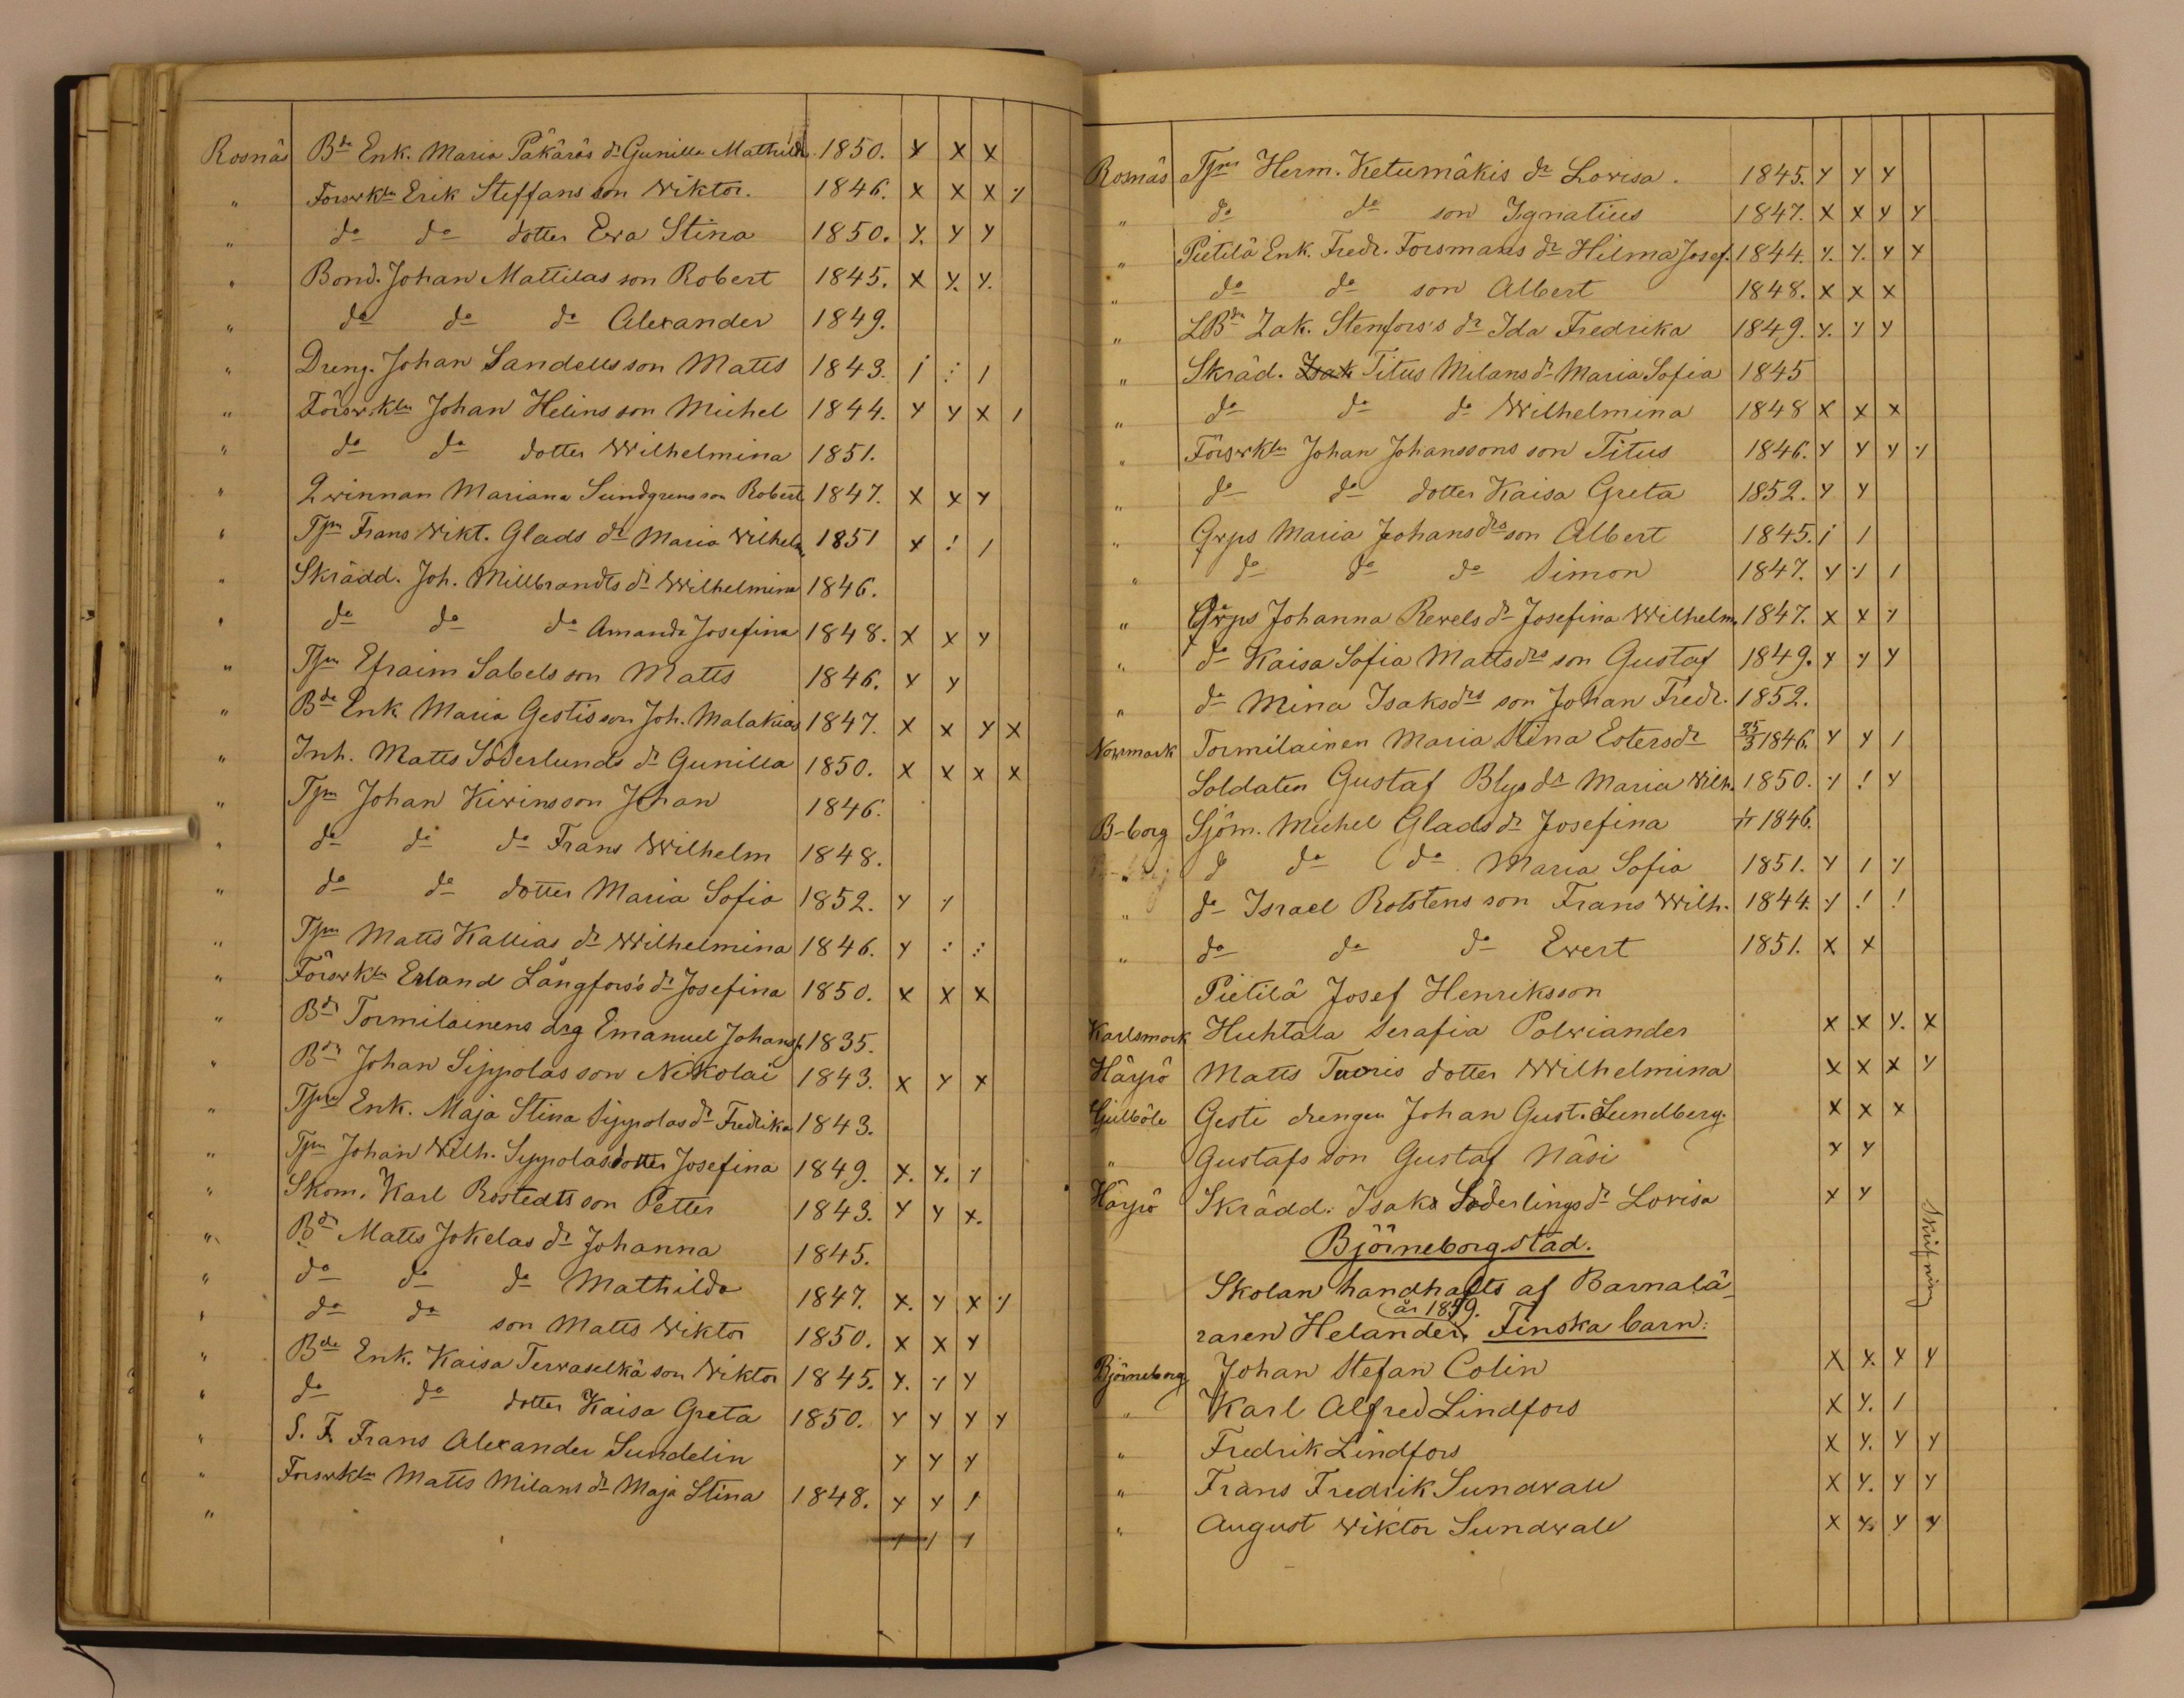 Rosnäs Bde Enk. Maria Päkäräs dr Gunilla Mathild. 1850. x x x
" Forsvktn Erik Steffans son Wiktor. 1846. x x x y
" do do dotter Eva Stina 1850. y. y y
" Bond. Johan Mattilas son Robert 1845. x y. y.
" do do do Alexander 1849.
" Dreng. Johan Sandells son Matts 1843. i : 1
" Försvktn Johan Helins son Michel 1844. y y x 1
" do do dotter Wilhelmina 1851.
" Qvinnan Mariana Sundgrens son Robert 1847. x x y
" Tpm Frans Wikt. Glads dr Maria Wilhelm 1851 x ! 1
" Skrädd. Joh. Millbrandts dr Wilhelmina 1846.
" do do do Amanda Josefina 1848. x x y
" Tpm Efraim Sabels son Matts 1846. y y
" Bde Enk Maria Gestis son Joh. Malakias 1847. x x y x
" Inh. Matts Söderlunds dr Gunilla 1850. x x x x
" Tpm Johan Kivins son Johan 1846.
" do do do Frans Wilhelm 1848.
" do do dotter Maria Sofia 1852. y y
" Tpm Matts Kallias dr Wilhelmina 1846. y : :
" Försvktn Erland Långfors's dr Josefina 1850. x x x
" Bdn Tormilainens drg Emanuel Johansf. 1835.
" Bdn Johan Sippolas son Nikolai 1843. x y x
" Tpm Enk. Maja Stina Sippolas dr Fredrika 1843.
" Tpm Johan Wilh. Sippolas dotter Josefina 1849. x. y. y
" Skom. Karl Rostedts son Petter 1843. y y x.
" Bdn Matts Jokelas dr Johanna 1845.
" do do do Mathilda 1847. x. y x y
" do do son Matts Wiktor 1850. x x y
" Bde Enk. Kaisa Tervaselkä son Wiktor 1845. y. y y
" do do dotter Kaisa Greta 1850. y y y y
" S. F. Frans Alexander Sundelin y y y
" Forsvktn Matts Milans dr Maja Stina 1848. y y !
" 1 1 1
Rosnäs Tpm Herm. Ketumäkis dr Lovisa. 1845. y y y
" do do son Ignatius 1847. x x y y
" Pietilä Enk. Fredr. Forsmans dr Hilma Josef. 1844. y. y. y y
" do do son Albert 1848. x x x
" LBdn Zak. Stenfors's dr Ida Fredrika 1849. y. y y
" Skräd. Isak Titus Milans dr Maria Sofia 1845
" do do do Wilhelmina 1848 x x x
" Försvktn Johan Johanssons son Titus 1846. y y y y
" do do dotter Kaisa Greta 1852. y y
" Qvps Maria Johansdrs son Albert 1845. i 1
" do do do Simon 1847. y y 1
" Qvps Johanna Revels dr Josefina Wilhelm. 1847. x x y
" do Kaisa Sofia Mattsdrs son Gustaf 1849. y y y
" do Mina Isaksdrs son Johan Fredr. 1852.
Norrmark Tormilainen Maria Stina Estersdr 25/3 1846. y y 1
Soldaten Gustaf Blys dr Maria Wilh. 1850. y ! y
B-borg Sjöm. Michel Glads dr Josefina 1846.
" do do do Maria Sofia 1851. y 1 y
" do Israel Rotstens son Frans Wilh. 1844. y ! !
" do do do Evert 1851. x x
Pietilä Josef Henriksson
Karlsmark Huhtala Serafia Polviander x x y. x
Härpö Matts Tuoris dotter Wilhelmina x x x y
Gjulböle Gesti drengen Johan Gust. Lundberg. x x x
" Gustafs son Gustaf Näsi y y
Härpö Skrädd. Isaks Söderlings dr Lovisa x y
Björneborg stad.
Skrifning
Skolan handhafts af Barnalä-
(år 1859.
raren Helander. Finska barn:
Björneborg Johan Stefan Colin x y. y y
" Karl Alfred Lindfors x y. 1
" Fredrik Lindfors x y. y y
" Frans Fredrik Sundvall x y. y y
" August Wiktor Sundvall x y. y y